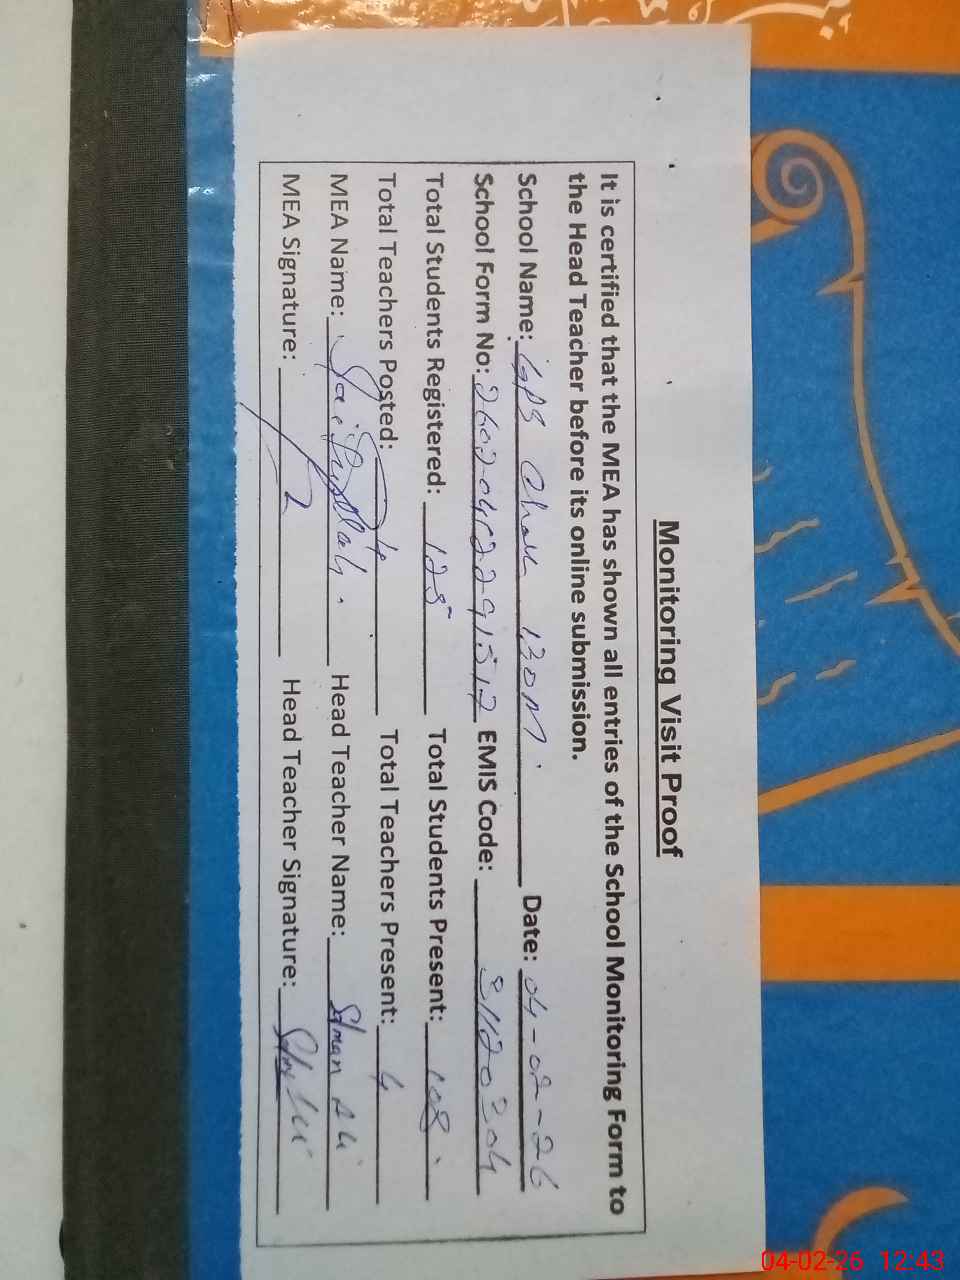 Monitoring Visit Proof
It is certified that the MEA has shown all entries of the School Monitoring Form to
the Head Teacher before its online submission.
School Name: GPS Chak 130M Date: 04-02-26
School Form No: EMIS Code: 31120304
Total Students Registered: 125 Total Students Present: 108
Total Teachers Posted: 4 Total Teachers Present: 4
MEA Name: Saifullah Head Teacher Name: Ali
MEA Signature: Head Teacher Signature:
04-02-26 12:43